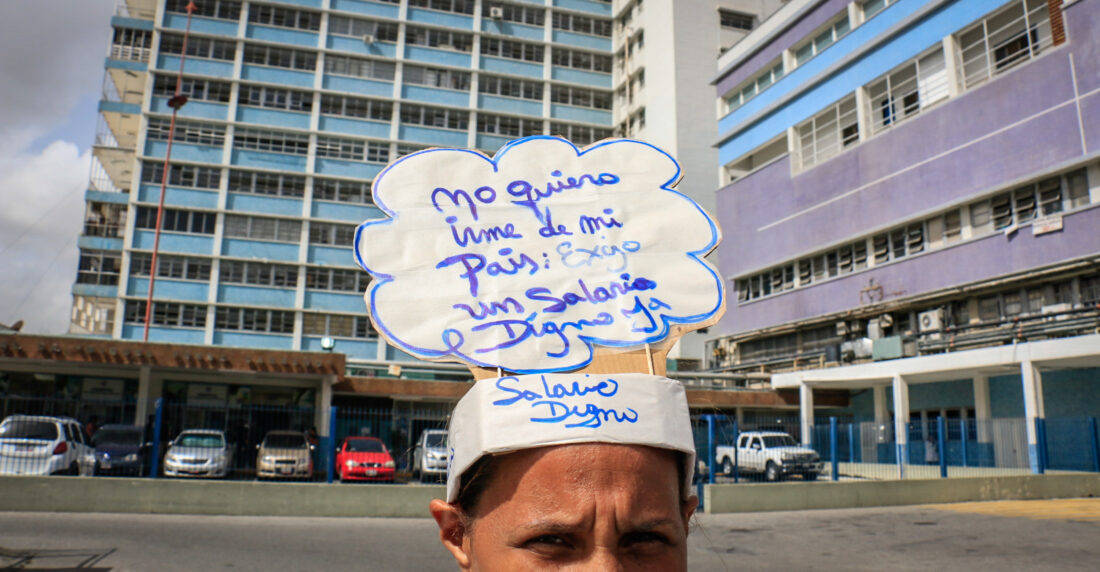 No quiero
irme de mi
Pais: Exijo
un Salario
e Digno ya
Salario
Digno